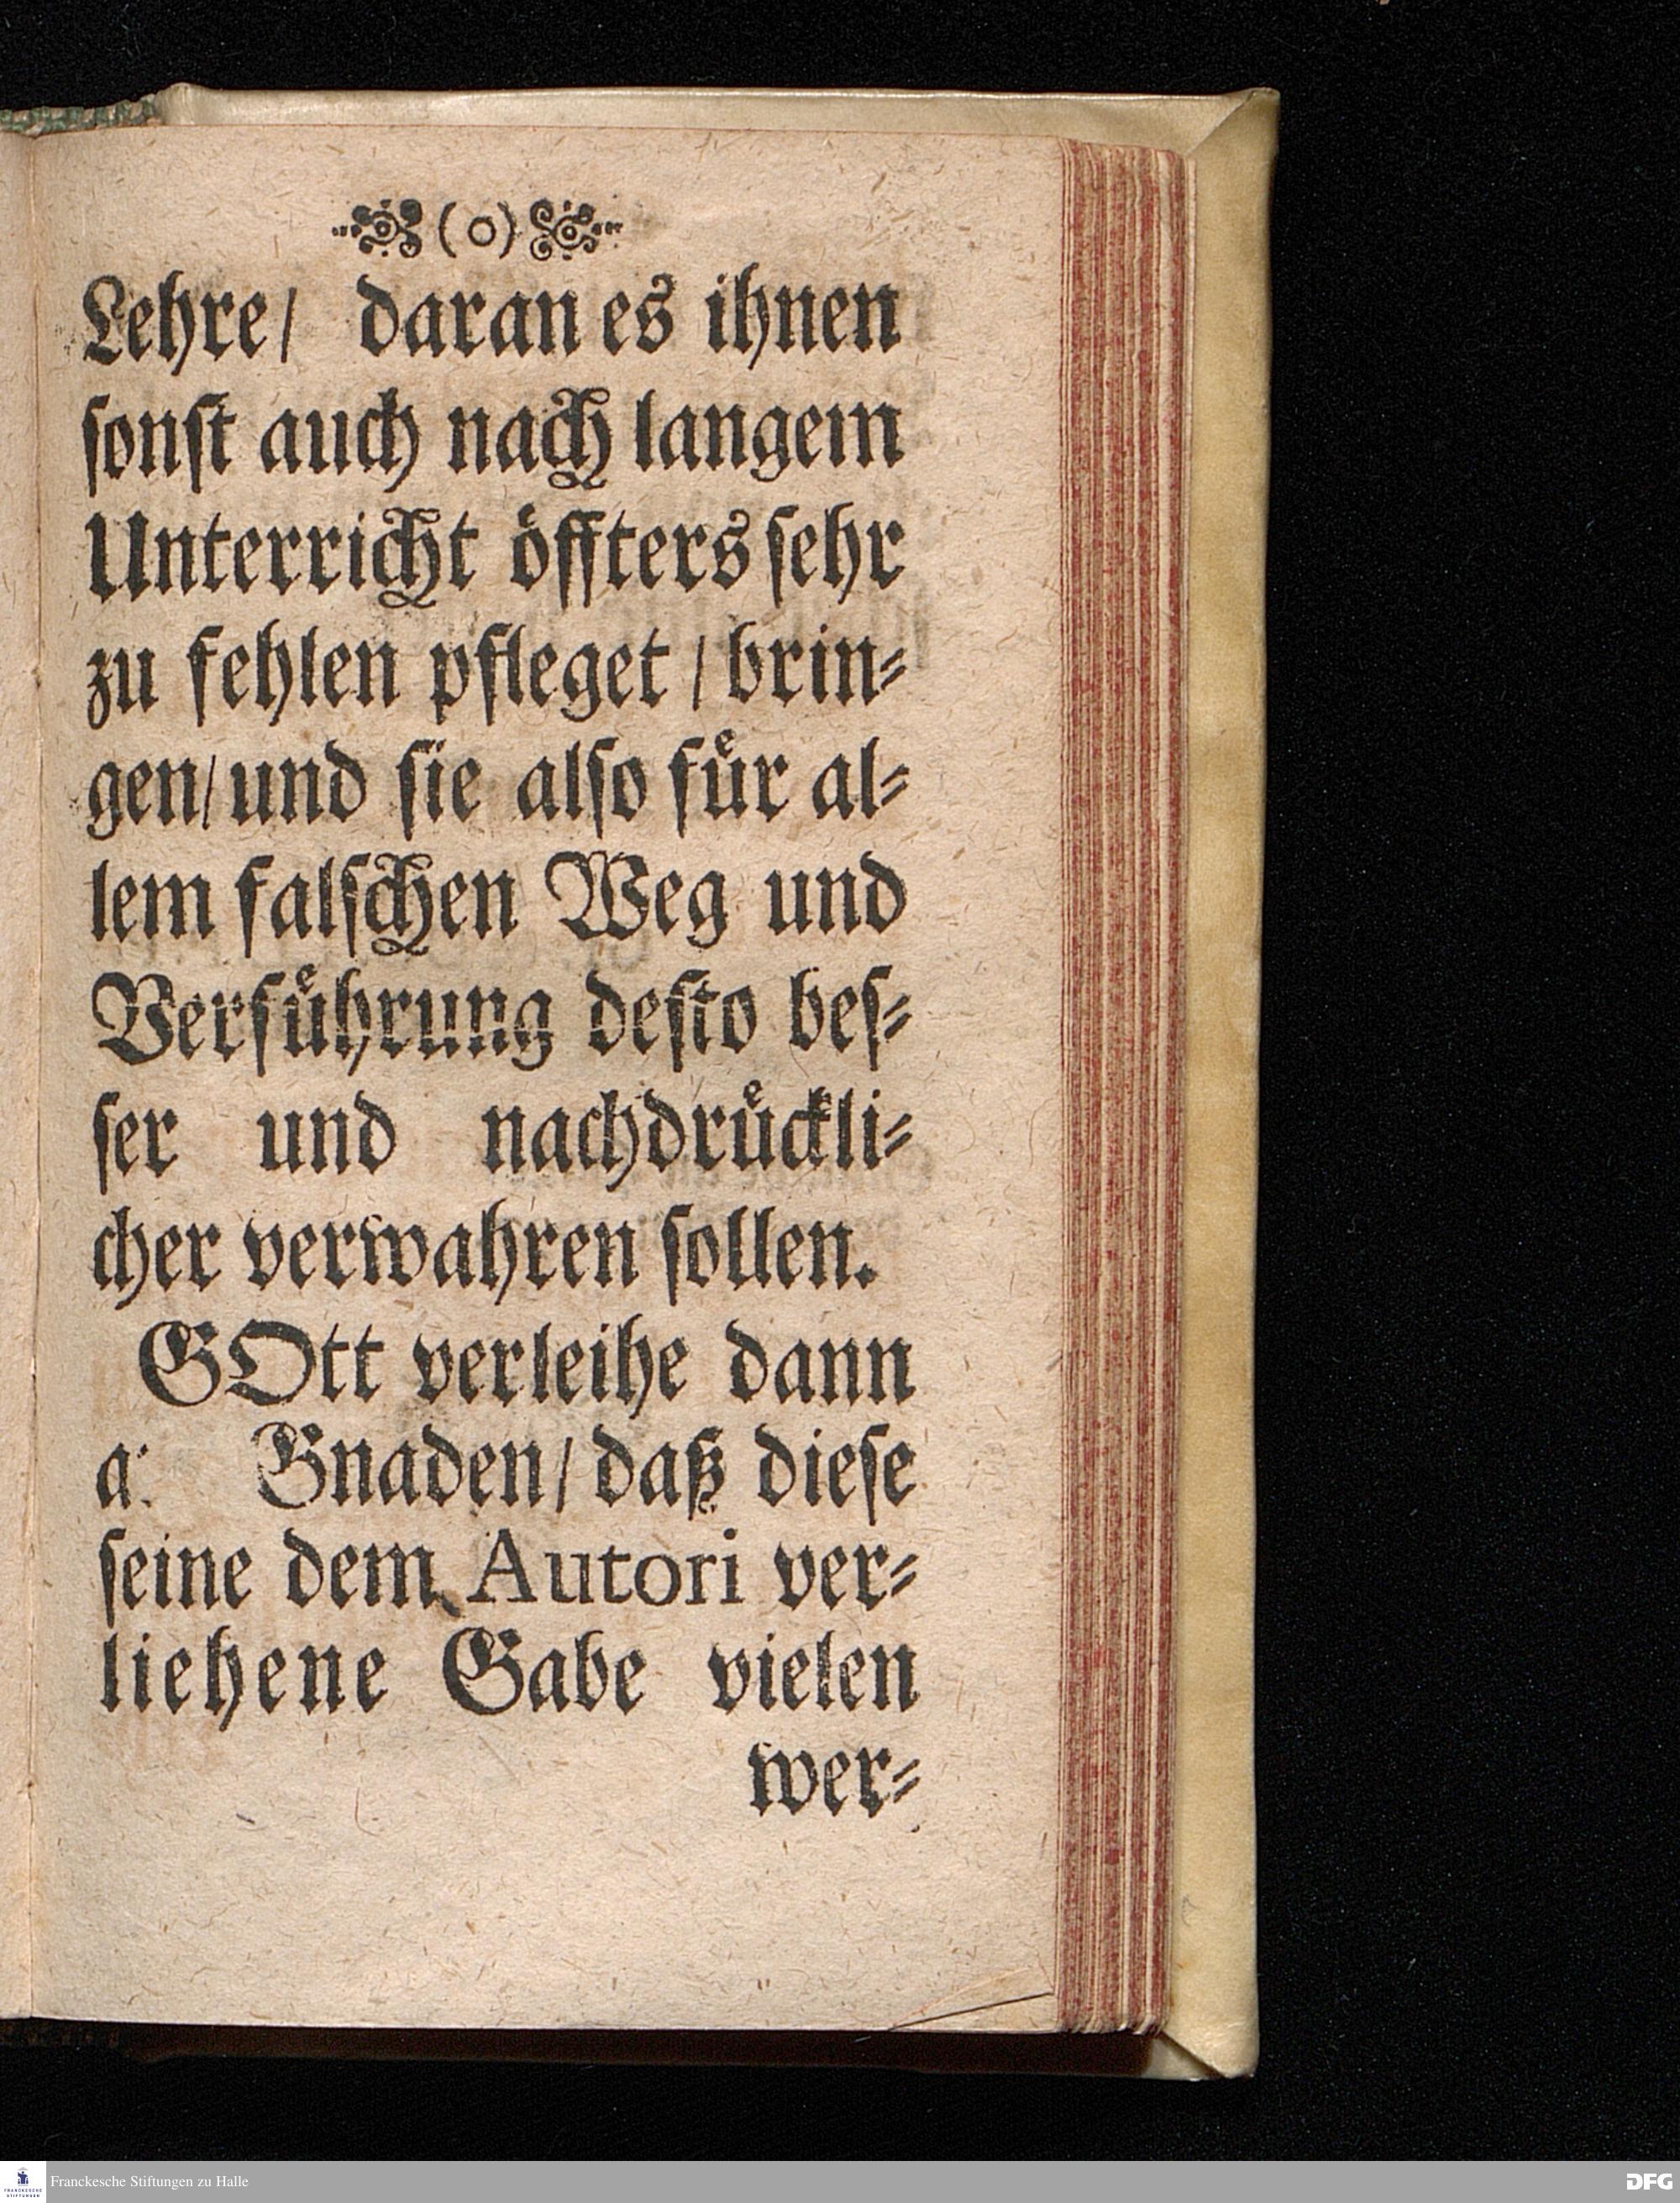 (o)
Lehre/ daran es ihnen
ſonſt auch nach langem
Unterricht öffters ſehr
zu fehlen pfleget / brin⸗
gen/ und ſie alſo fuͤr al⸗
lem falſchen Weg und
Verfuͤhrung deſto beſ⸗
ſer und nachdruͤckli⸗
cher verwahren ſollen.
GOtt verleihe dann
Gnaden/ daß dieſe
ſeine dem Autori ver⸗
liehene Gabe vielen
wer⸗
Franckesche Stiftungen zu Halle
FRANCKESCHE
STIFTUNGEN
DFG